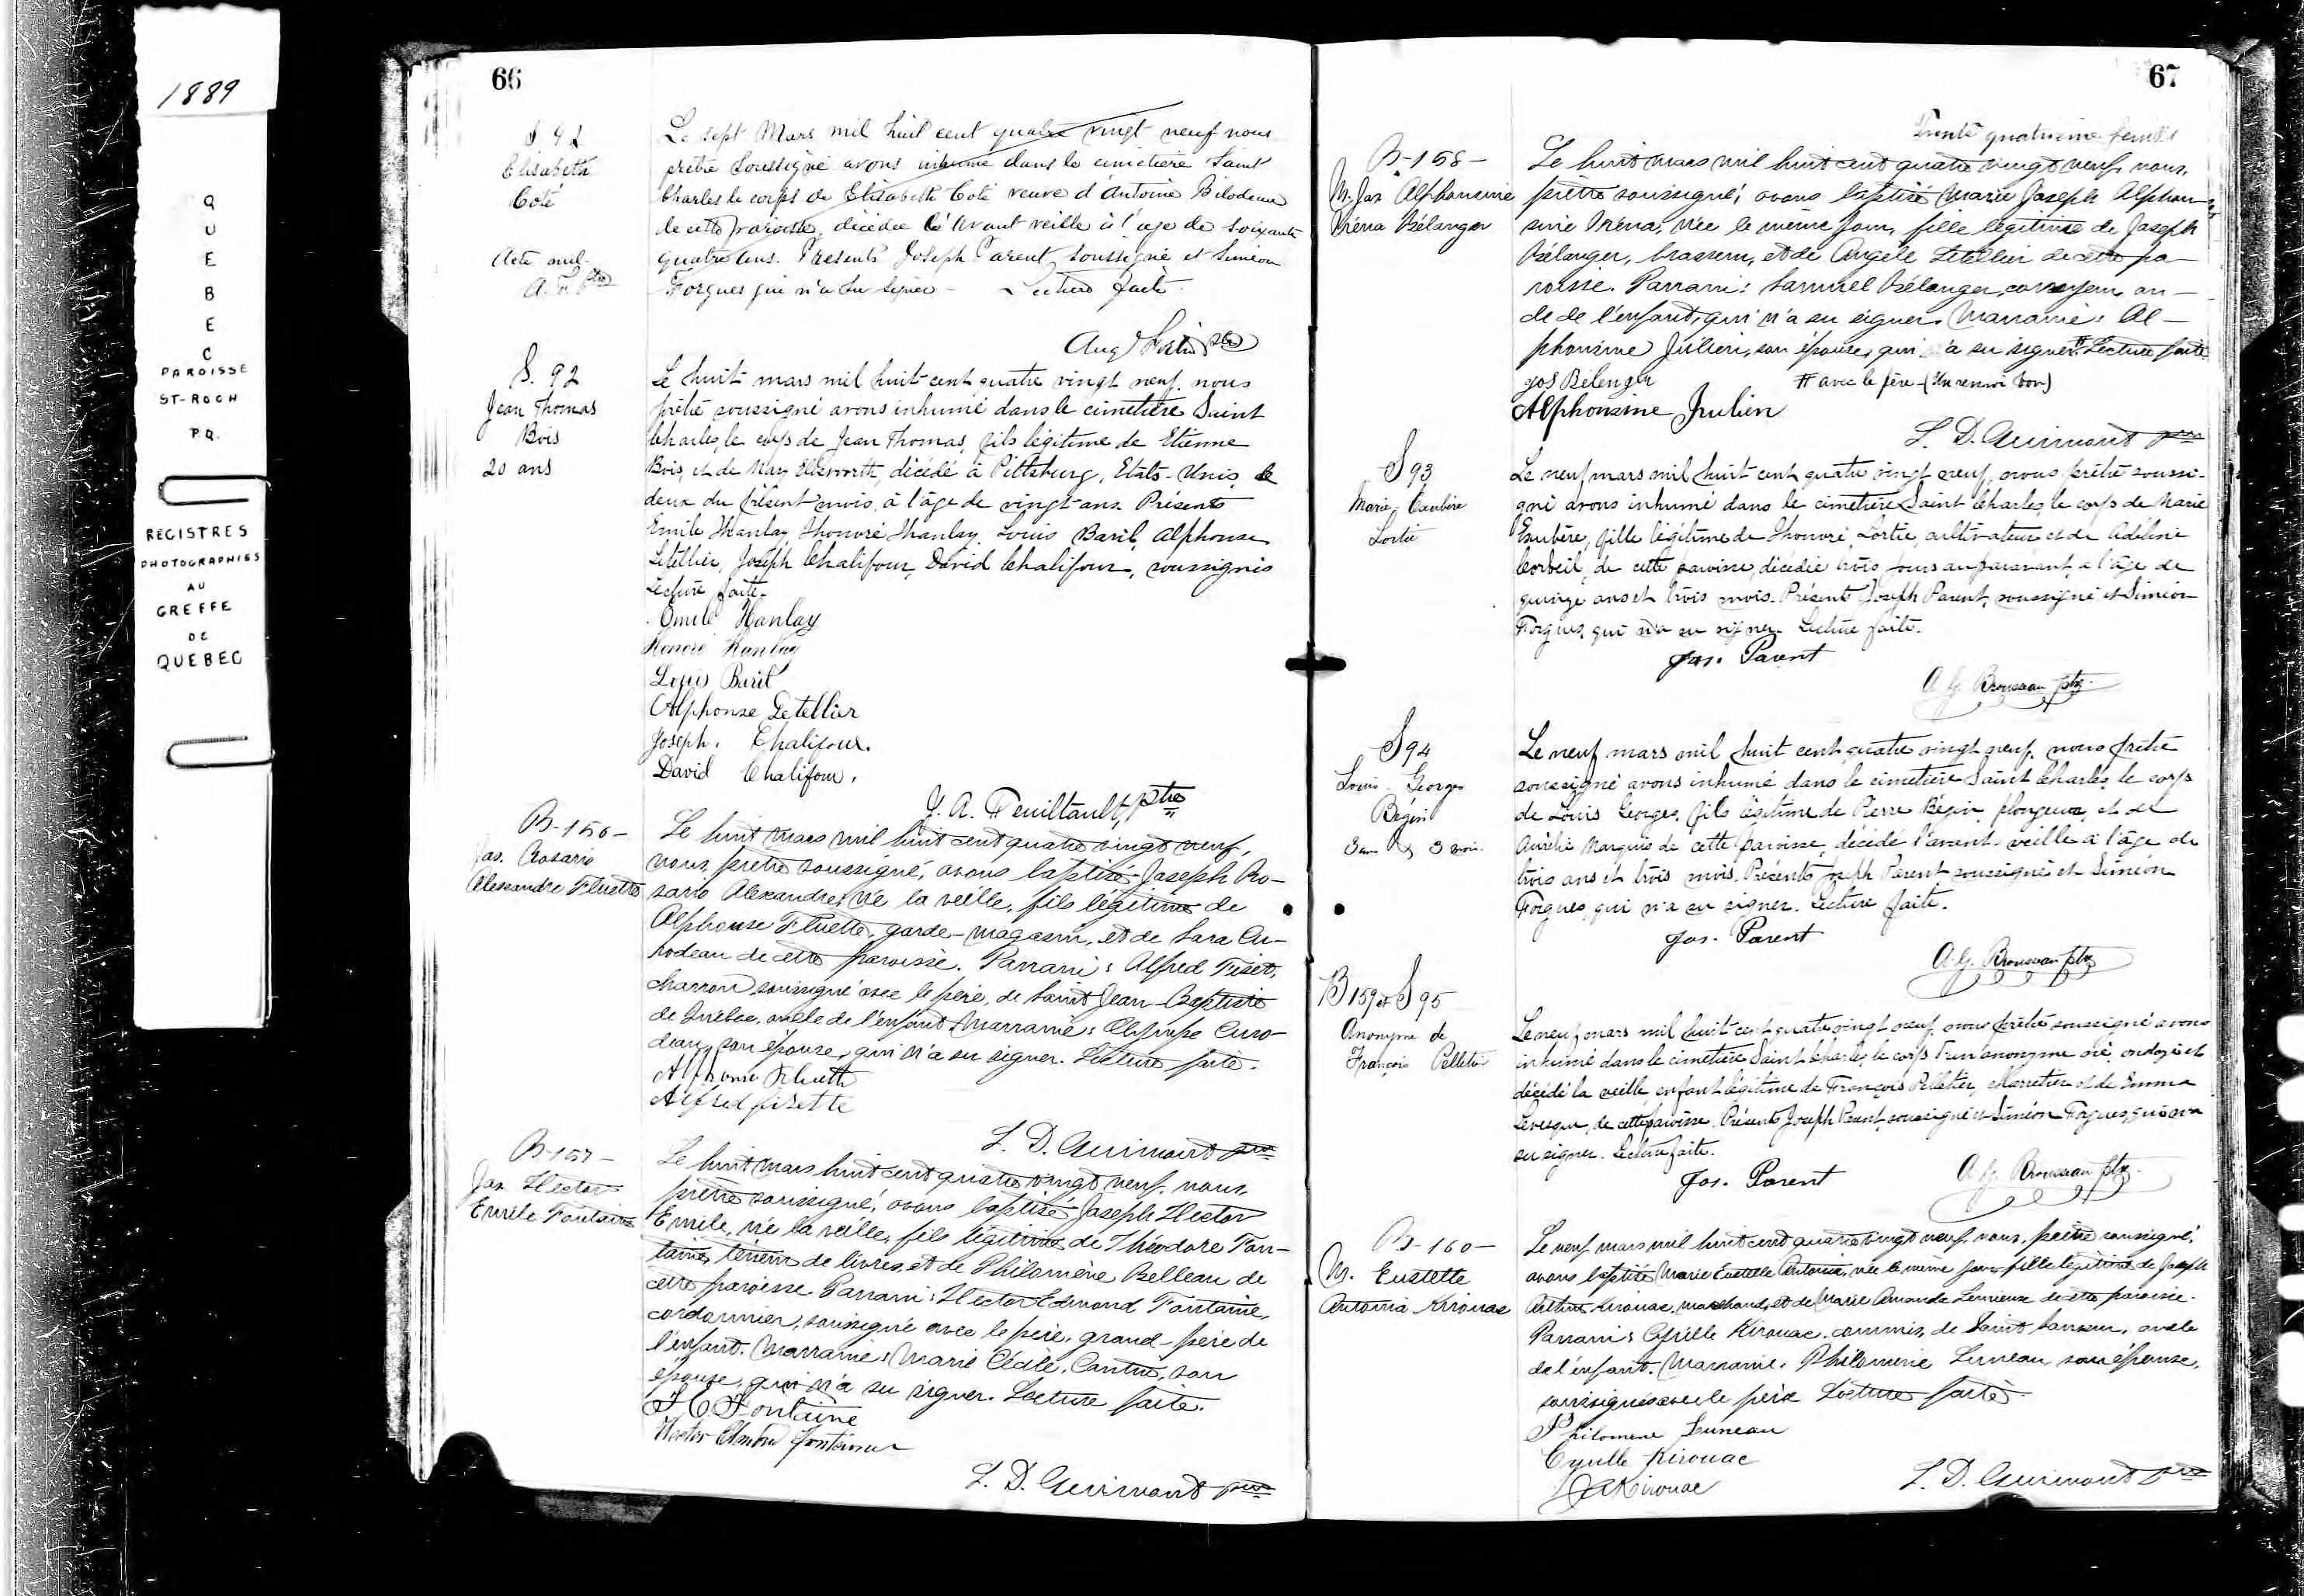 1889
QUEBEC
PAROISSE
ST-ROCH
P.Q.
REGISTRES
PHOTOGRAPHIES
AU
GREFFE
DE
QUEBEC
66
S 92
Elisabeth
Coté
Acte nul
Le sept Mars mil huit cent quatre vingt neuf nous
prêtre soussigné avons inhumé dans le cimetière Saint
Charles le corps de Elisabeth Coté veuve d'Antoine Bilodeau
de cette paroisse, décédée l'avant veille à l'age de soixante
quatre ans. Présents Joseph Parent soussigné et Siméon
Forgues qui n'a su signer - Lecture faite.
S. 92
Jean Thomas
Bois
20 ans
Le huit mars mil huit cent quatre vingt neuf nous
prêtre soussigné avons inhumé dans le cimetière Saint
Charles, le corps de Jean Thomas, fils légitime de Etienne
Bois, et de Mary Ellsworth, décédé à Pittsburg, Etats-Unis, le
deux du présent mois, à l'âge de vingt ans. Présents
Emile Hanlay, Honoré Hanlay, Louis Baril, Alphonse
Letellier, Joseph Chalifour, David Chalifour, soussignés
Lecture faite.
Emile Hanlay
Honoré Hanlay
Louis Baril
Alphonse Letellier
Joseph. Chalifour.
David Chalifour.
J. A. Feuiltault, Ptre
B-156-
Jos. Rosario
Alexandre Fluette
Le huit mars mil huit cent quatre vingt neuf,
nous, prêtre soussigné, avons baptisé Joseph Ro-
sario Alexandre, né la veille, fils légitime de
Alphonse Fluette, garde-magasin, et de Sara Cu-
rodeau de cette paroisse. Parrain: Alfred Fiset,
charron, soussigné avec le père, de Saint Jean-Baptiste
de Québec, oncle de l'enfant. Marraine: Curo-
deau, son épouse, qui n'a su signer. Lecture faite.
Alphonse Fluette
Alfred Fisette
L. D. Guimont ptre
B-157-
Jos. Hector
Emile Fontaine
Le huit mars huit cent quatre vingt neuf, nous,
prêtre soussigné, avons baptisé Joseph Hector
Emile, né la veille, fils légitime de Théodore Fon-
taine, teneur de livres, et de Philomène Belleau de
cette paroisse. Parrain: Hector Edmond Fontaine,
cordonnier, soussigné avec le père, grand-père de
l'enfant. Marraine: Marie Cécile Cantin, son
épouse, qui n'a su signer. Lecture faite.
Fontaine
Hector Edmond Fontaine
L. D. Guimont ptre
67
Trente quatrième feuillet
B-158-
M. Jos Alphonsine
Iréna Bélanger
Le huit mars mil huit cent quatre vingt neuf, nous,
prêtre soussigné, avons baptisé Marie Joseph Alphon-
sine Iréna, née le même jour, fille légitime de Joseph
Bélanger, brasseur, et de Angèle Letellier de cette pa-
roisse. Parrain: Samuel Bélanger, corroyeur, on-
cle de l'enfant, qui n'a su signer. Marraine: Al-
phonsine Julien, son épouse, qui a su signer # Lecture faite.
Jos Belenger # avec le père - (Un renvoi bon)
Alphonsine Julien
L. D. Guimont ptre
S 93
Marie Exubère
Lortie
Le neuf mars mil huit cent quatre vingt neuf, nous prêtre soussi-
gné avons inhumé dans le cimetière Saint Charles, le corps de Marie
Exubère, fille légitime de Honoré Lortie, cultivateur et de Adéline
Corbeil, de cette paroisse, décédée trois jours auparavant, à l'âge de
quinze ans et trois mois. Présents Joseph Parent, soussigné et Siméon
Forgues, qui n'a su signer. Lecture faite.
Jos. Parent
A. G. Brousseau ptre.
S 94
Louis-Georges
Bégin
3 ans & 3 mois
Le neuf mars mil huit cent quatre vingt neuf, nous prêtre
soussigné avons inhumé dans le cimetière Saint Charles, le corps
de Louis Georges, fils légitime de Pierre Bégin, plongeur, et de
Aurélie Marquis de cette paroisse, décédé l'avant-veille à l'âge de
trois ans et trois mois. Présents Joseph Parent soussigné et Siméon
Forgues, qui n'a su signer. Lecture faite.
Jos. Parent
A. G. Brousseau ptre
B 159 et S 95
Anonyme de
François Pelletier
Le neuf mars mil huit cent quatre vingt neuf, nous prêtre soussigné avons
inhumé dans le cimetière Saint Charles, le corps d'un anonyme né, ondoyé et
décédé la veille, enfant légitime de François Pelletier, charretier et de Emma
Levesque, de cette paroisse. Présents Joseph Parent, soussigné et Siméon Forgues, qui n'a
su signer. Lecture faite.
Jos. Parent
A. G. Brousseau ptre.
B-160-
M. Eustelle
Antonia Kirouac
Le neuf mars mil huit cent quatre vingt neuf, nous, prêtre soussigné,
avons baptisé Marie Eustelle Antonia, née le même jour, fille légitime de Joseph
Arthur Kirouac, marchand, et de Marie Amanda Lemieux de cette paroisse.
Parrain: Cyrille Kirouac, commis, de Saint Sauveur, oncle
de l'enfant. Marraine: Philomène Luneau son épouse,
soussignés avec le père. Lecture faite.
Philomene Luneau
Cyrille Kirouac
Kirouac
L. D. Guimont ptre